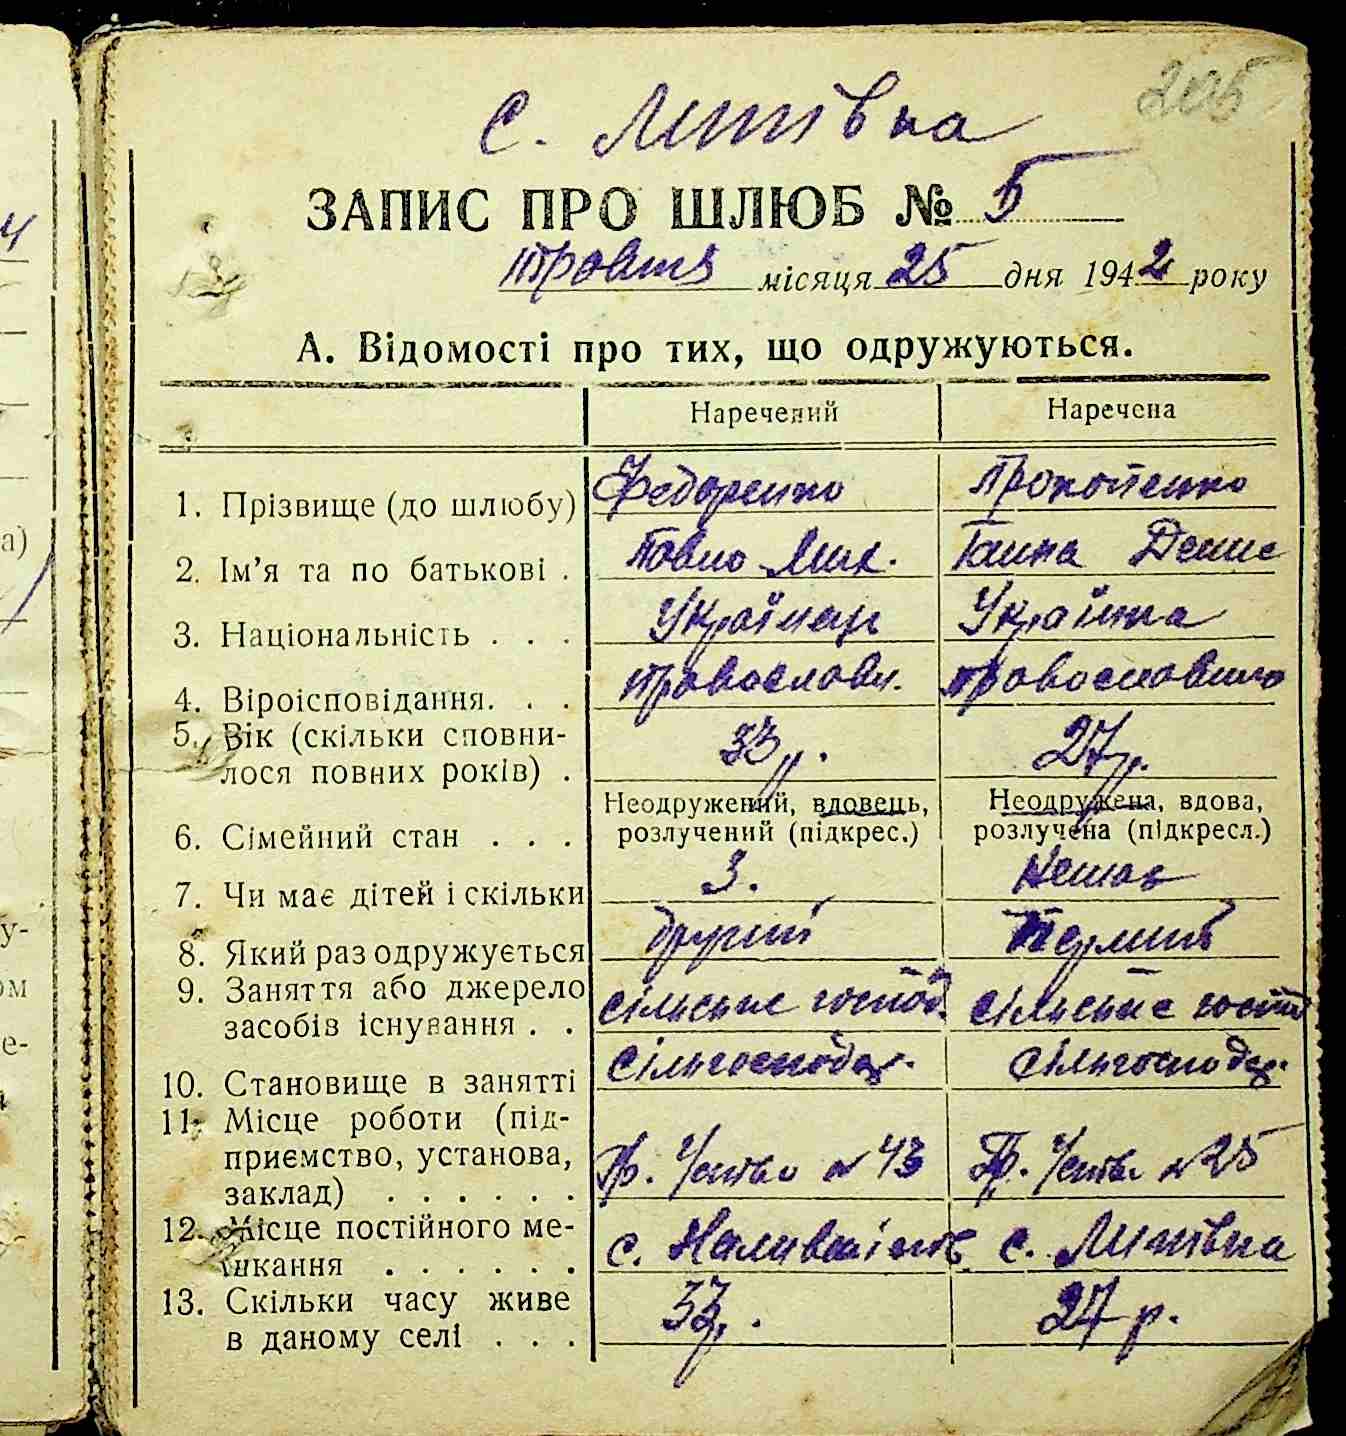 205
с. Липівка
ЗАПИС ПРО ШЛЮБ № 5
травня місяця 25 дня 1942 року
А. Відомості про тих, що одружуються.
Наречений Наречена
1. Прізвище (до шлюбу) Федоренко Прокопенко
2. Ім'я та по батькові . Павло Мик. Ганна Денис
3. Національність . . . Українець Українка
4. Віроісповідання. . . православн. православною
5. Вік (скільки сповни-
лося повних років) . 33 р. 27 р.
Неодружений, вдовець, Неодружена, вдова,
6. Сімейний стан . . . розлучений (підкрес.) розлучена (підкресл.)
7. Чи має дітей і скільки 3. Немає
8. Який раз одружується другий Первий
9. Заняття або джерело
засобів існування . . сільське господ. сільське госпо
10. Становище в занятті сільгосподар. сільгосподар.
11. Місце роботи (під-
приємство, установа,
заклад) . . . . . . Гр. №43 Гр. №25
12. Місце постійного ме-
шкання . . . . . . с. с. Липівка
13. Скільки часу живе
в даному селі . . . 33 р. 27 р.
4
а)
у-
ом
е-